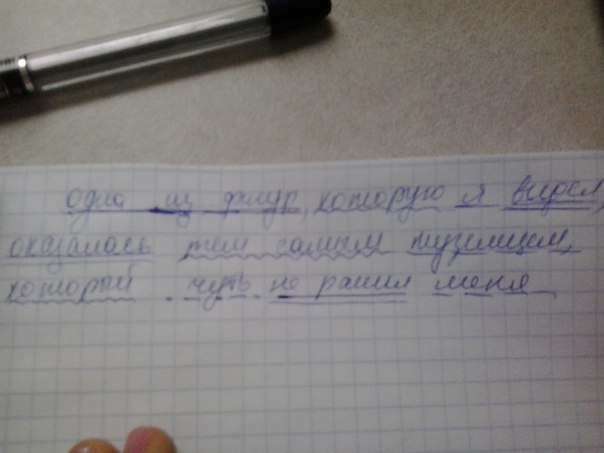 одна из фигур, которую я видел,
оказалась тем самым туземцем,
который чуть не ранил меня